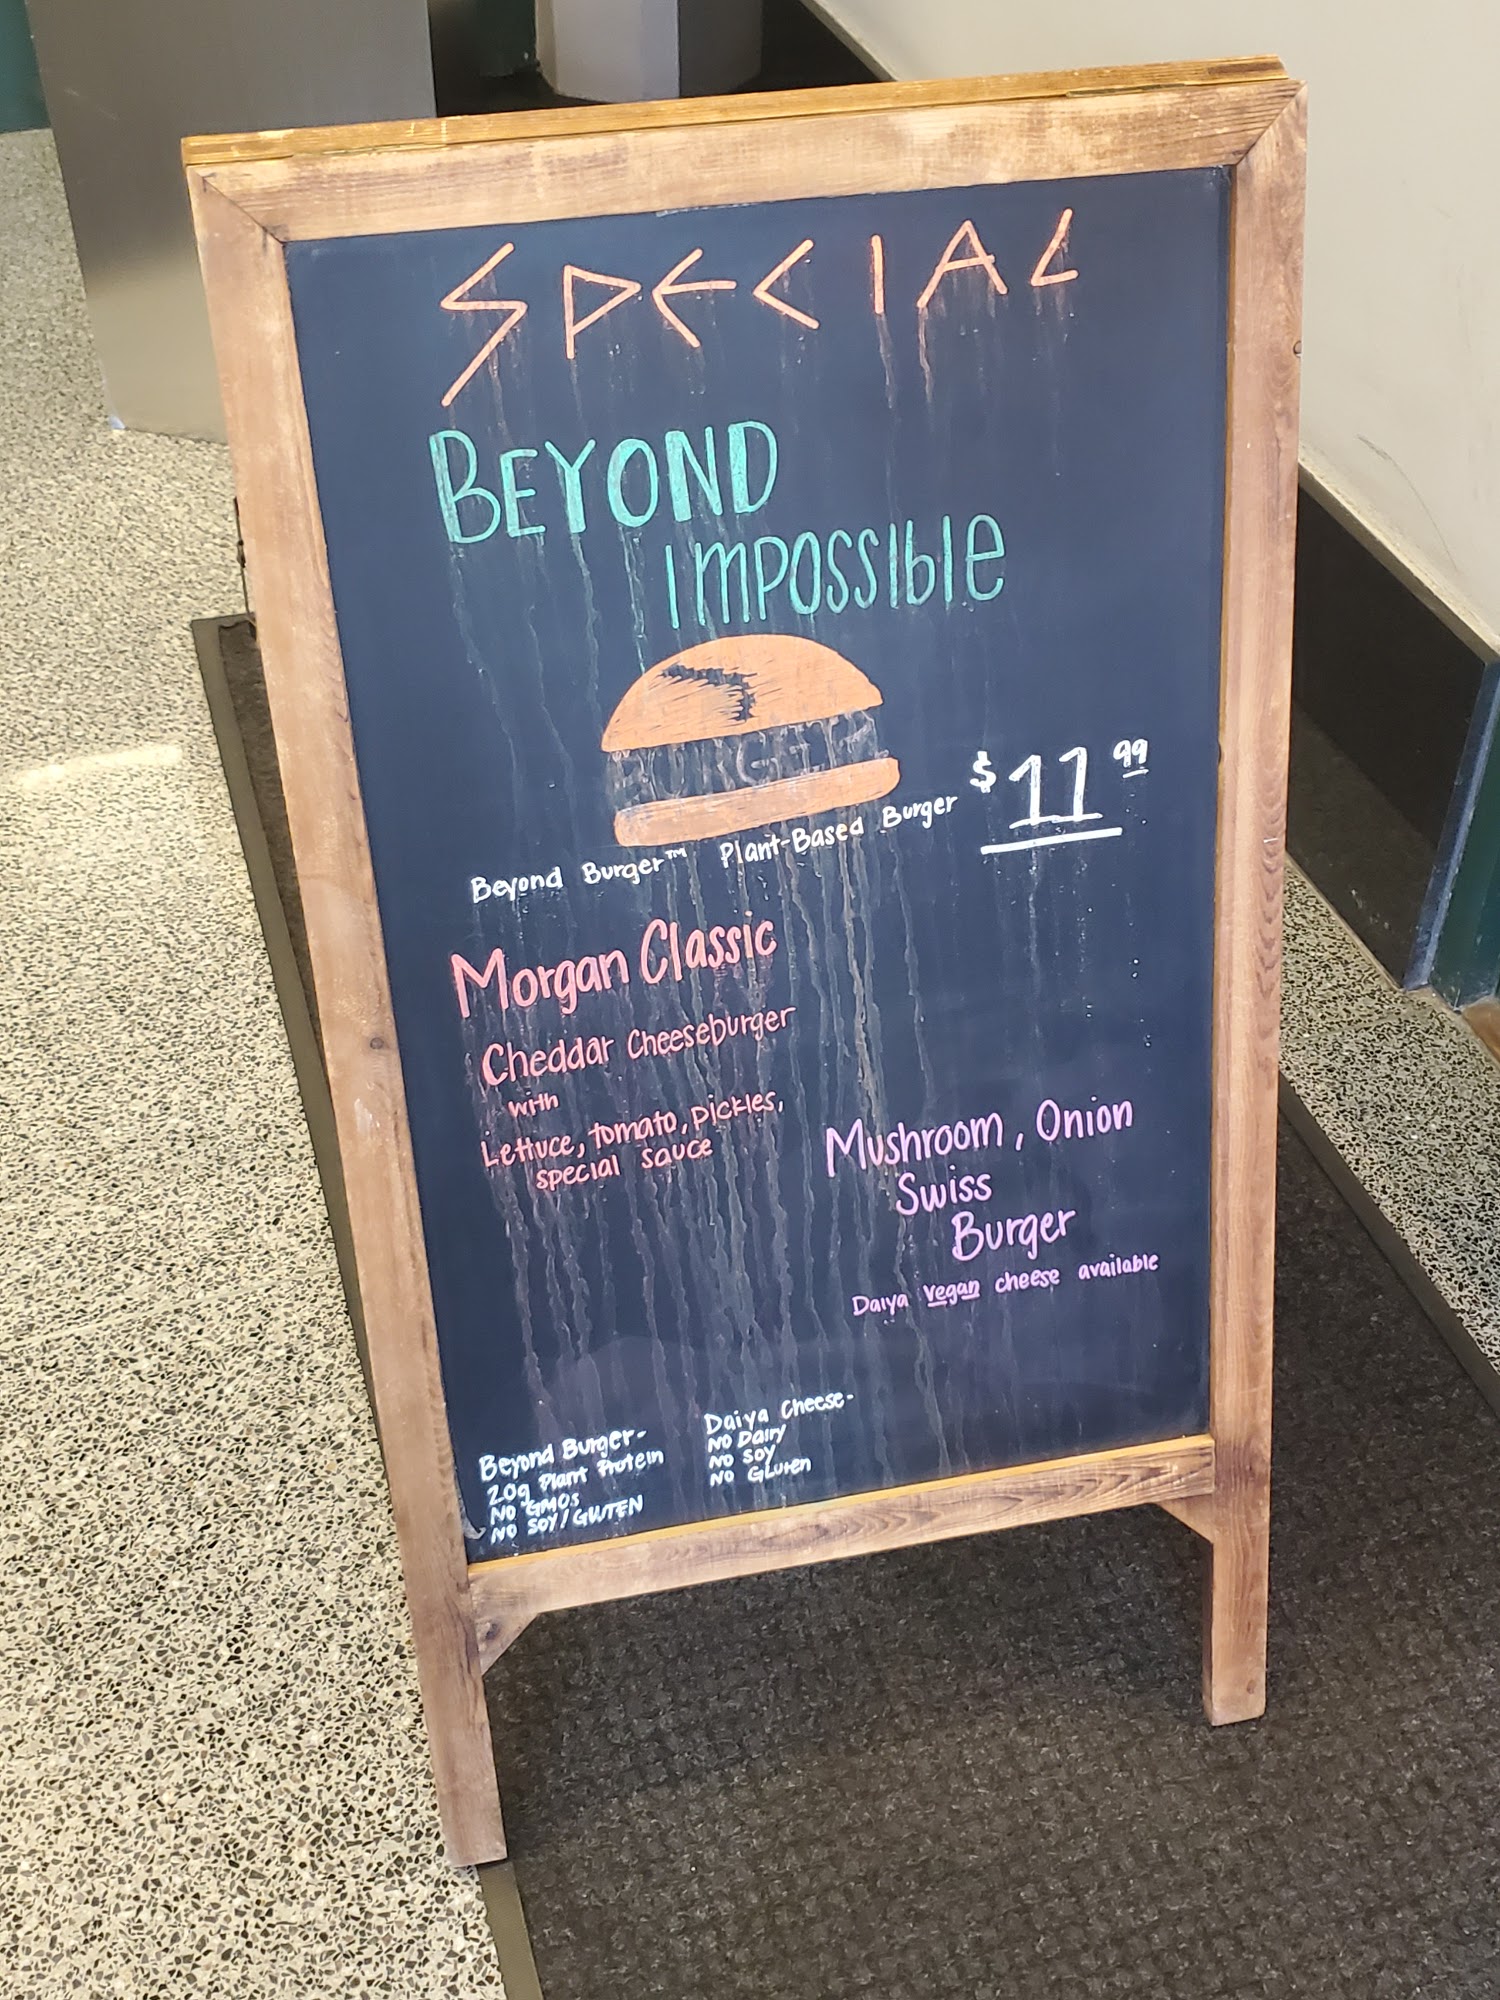 SPECIAL
BEYOND
IMPOSSIBLE
BURGER
Beyond Burger™ Plant-Based Burger $11.99
Morgan Classic
Cheddar Cheeseburger
with
Lettuce, tomato, pickles,
special sauce
Mushroom, Onion
Swiss
Burger
Daiya vegan cheese available
Beyond Burger-
20g Plant Protein
NO GMOS
NO SOY/GLUTEN
Daiya Cheese-
NO Dairy
NO SOY
NO Gluten